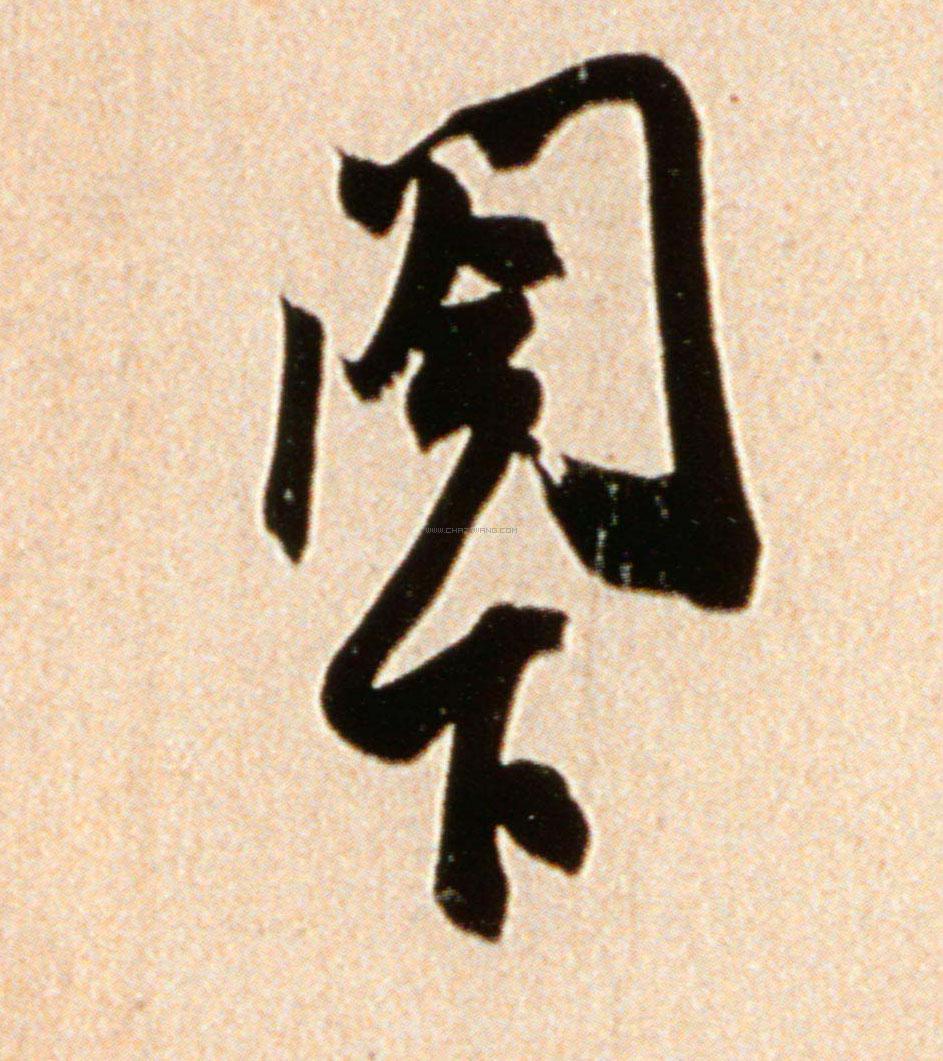 閣下
WWW.CHAZIWANG.COM